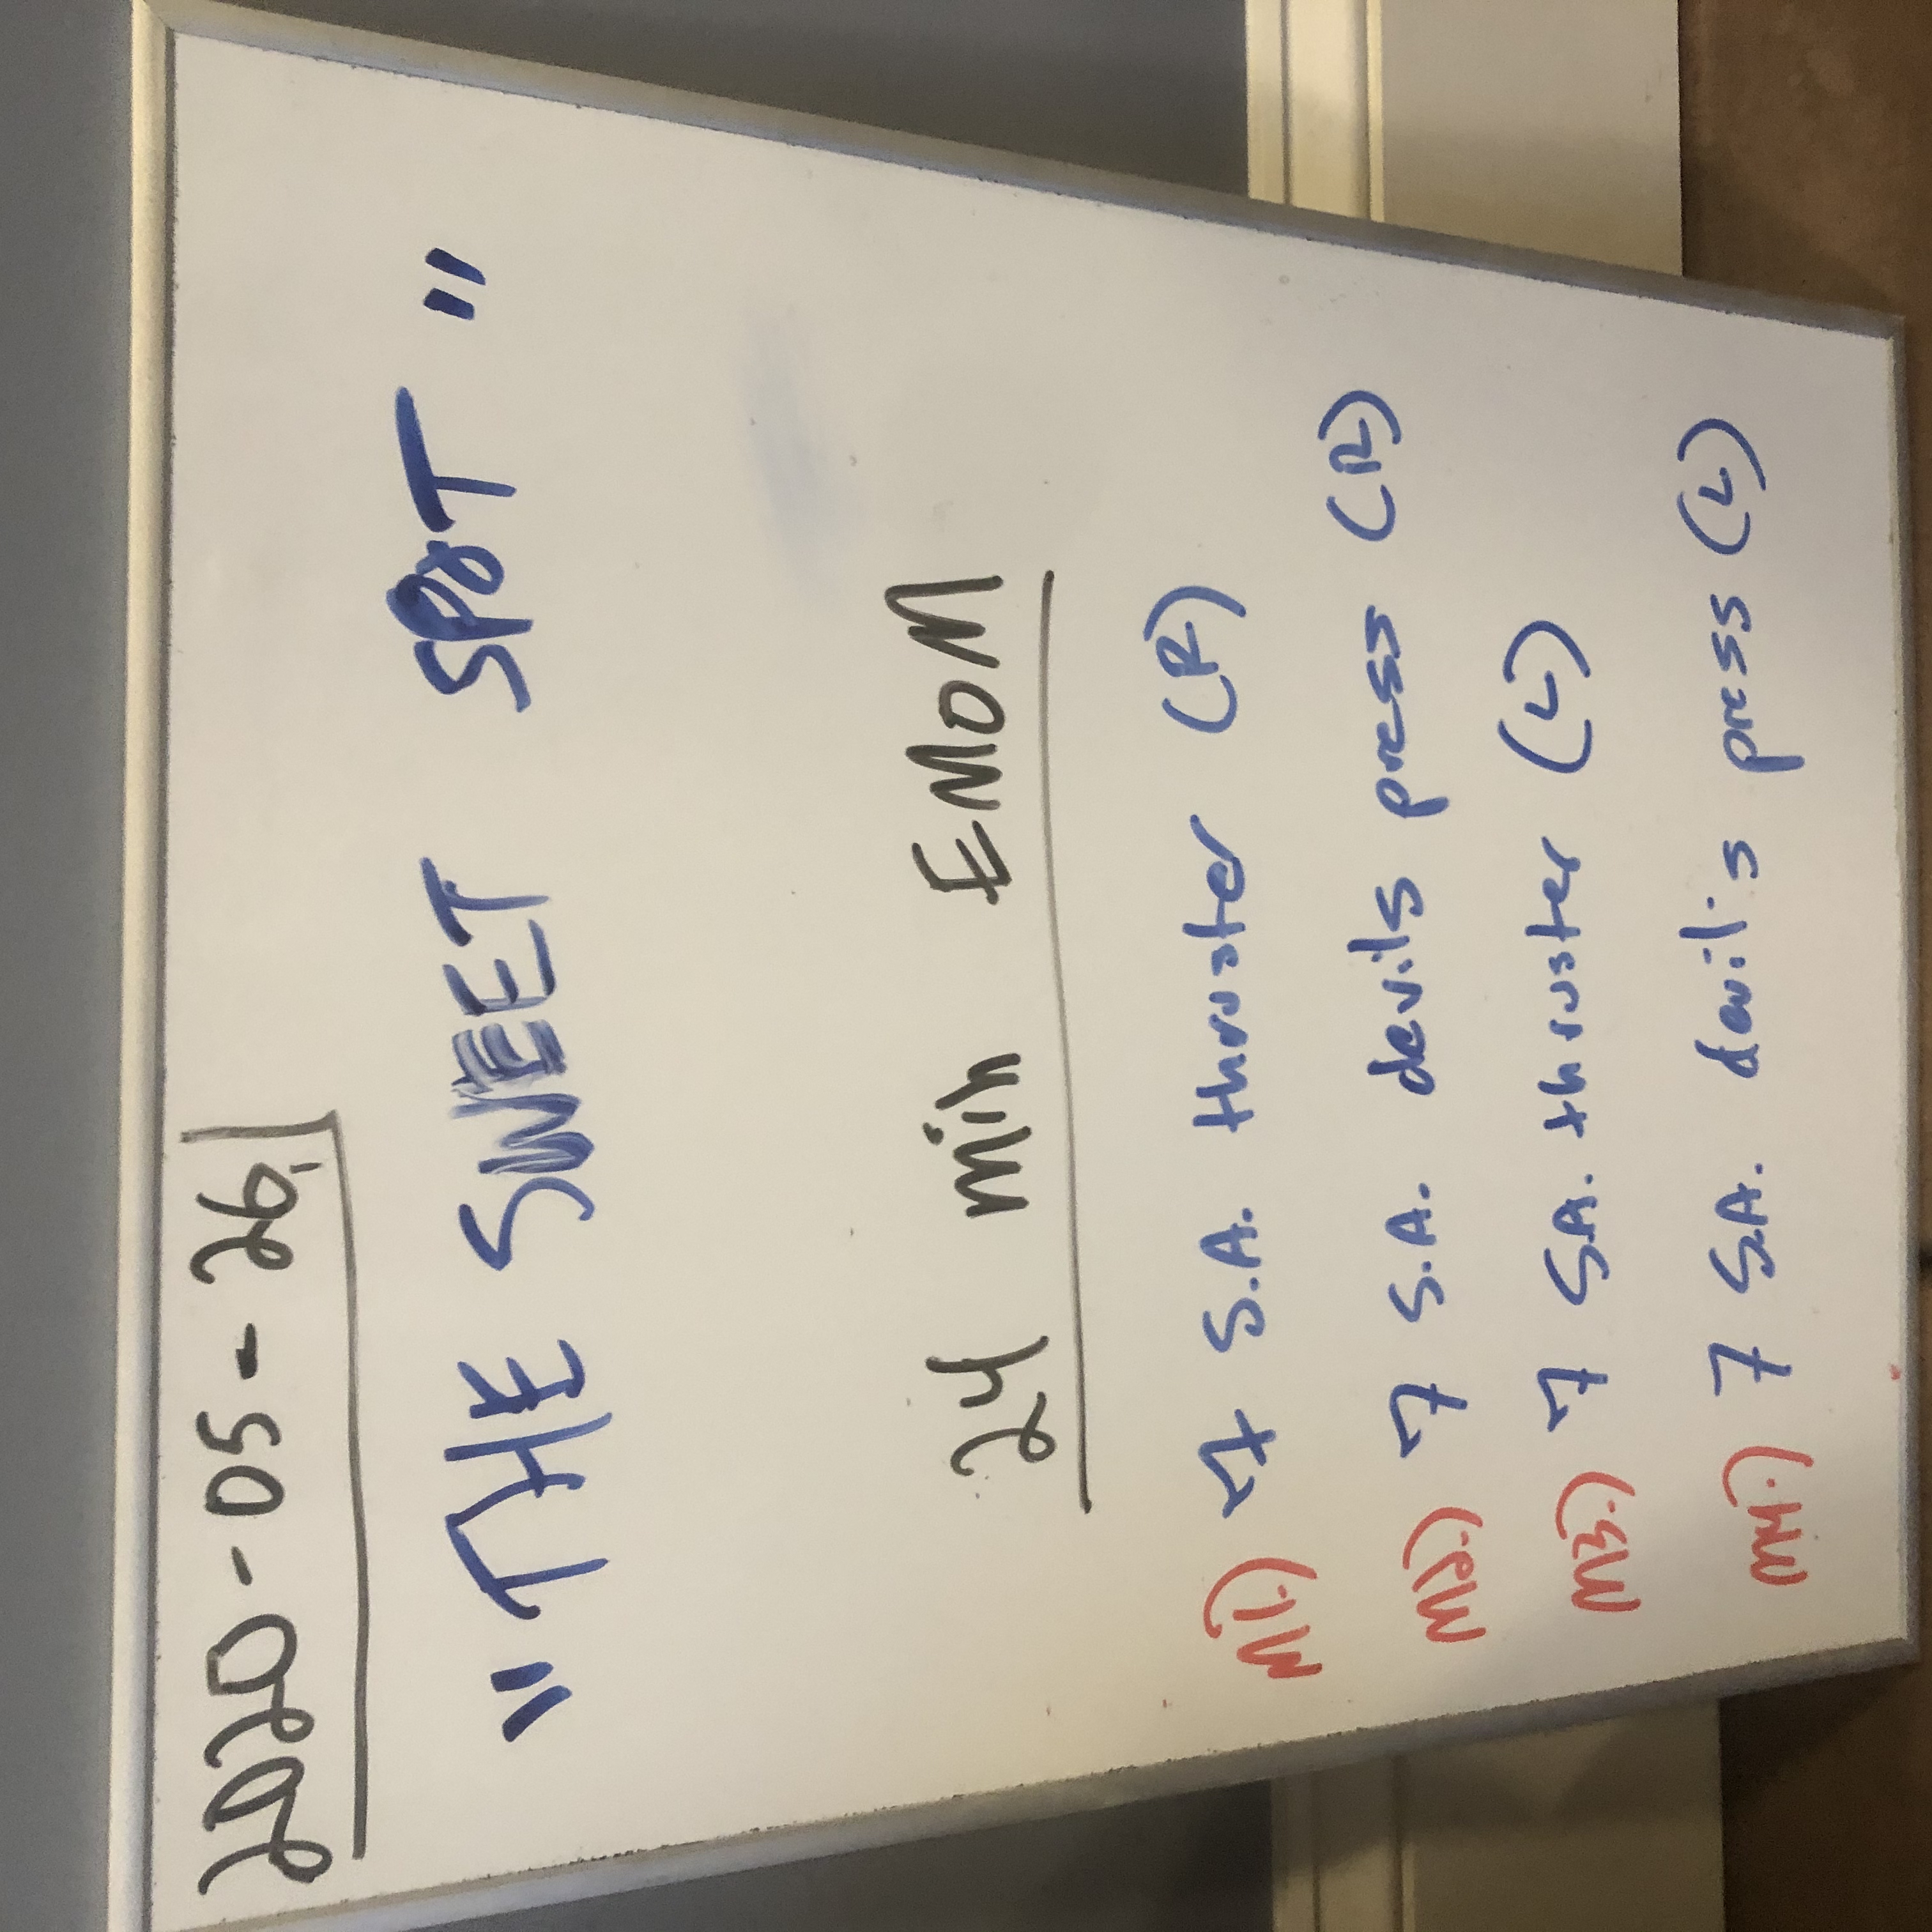 2020-05-26
"THE SWEET SPOT"
24 min EMOM
M1.) 7 S.A. thruster (R)
M2.) 7 S.A. devils press (R)
M3.) 7 S.A. thruster (L)
M4.) 7 S.A. devil's press (L)